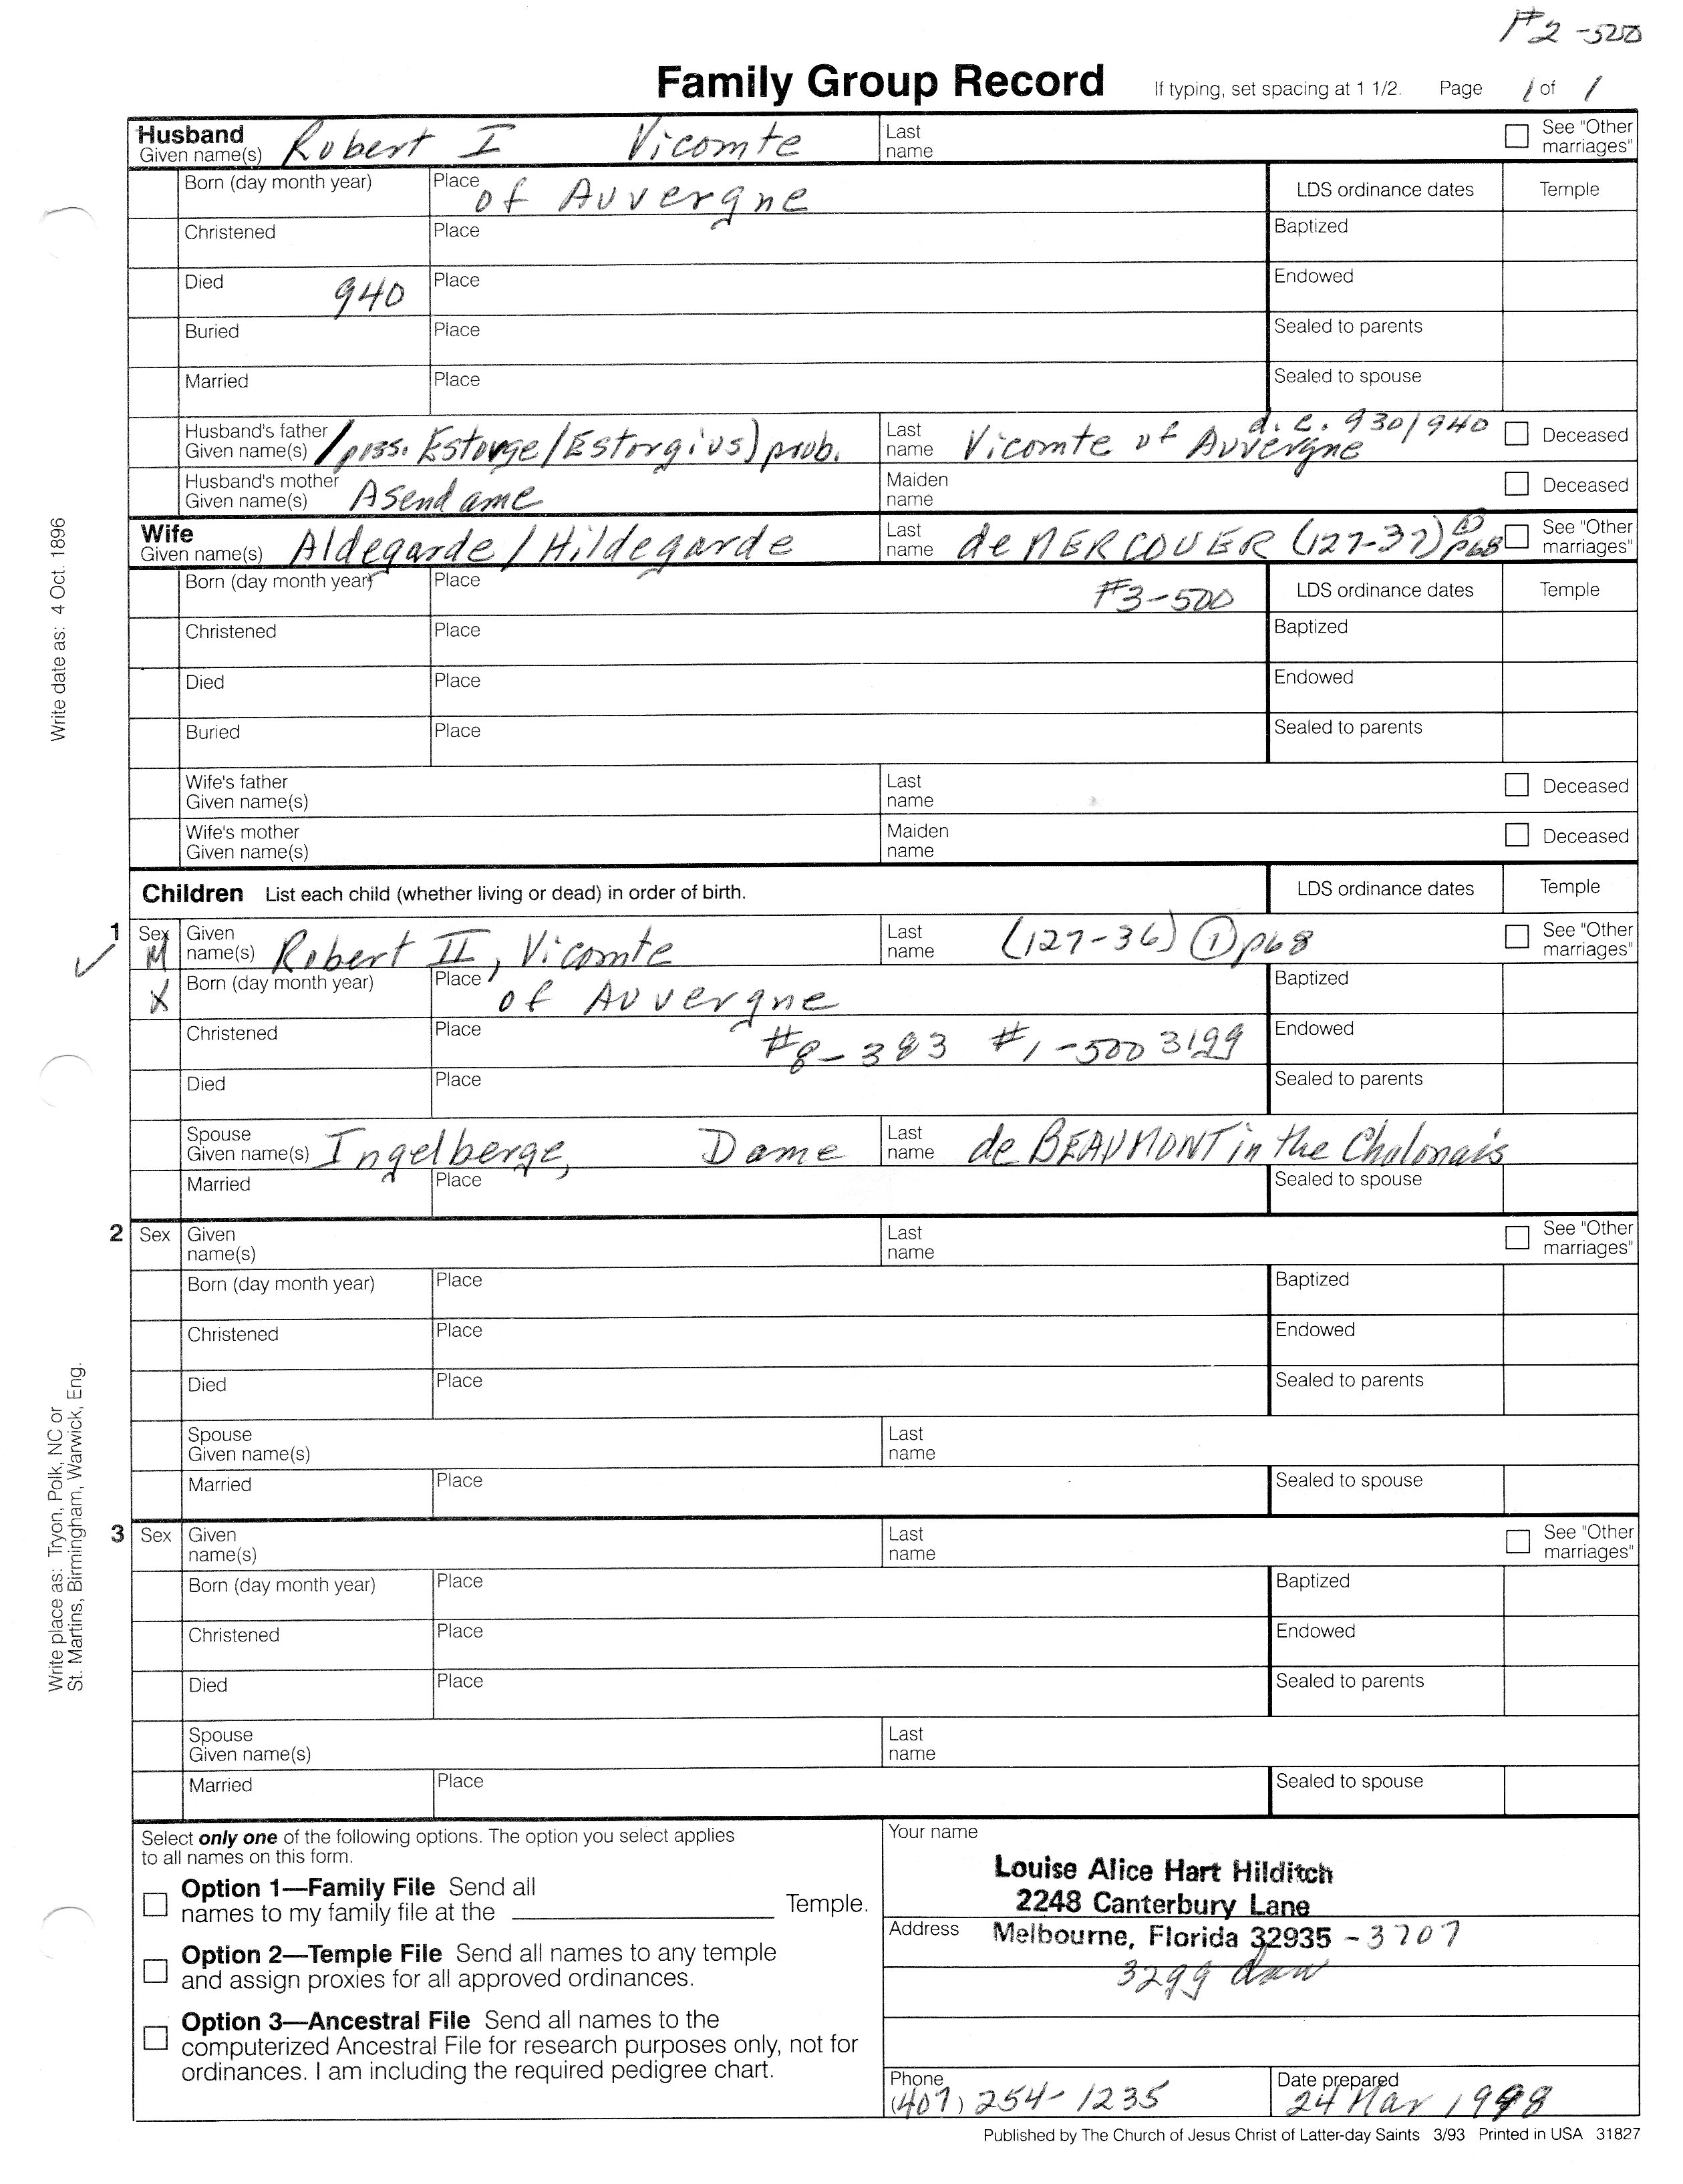 #2-500
Family Group Record If typing, set spacing at 1 1/2. Page 1 of 1
Husband
Given name(s) Robert I Vicomte Last name See "Other marriages"
Born (day month year) Place of Auvergne LDS ordinance dates Temple
Christened Place Baptized
Died 940 Place Endowed
Buried Place Sealed to parents
Married Place Sealed to spouse
Husband's father Given name(s) (poss. Estorge/Estorgius) prob. Last name Vicomte of Auvergne d. c. 930/940 Deceased
Husband's mother Given name(s) Asendame Maiden name Deceased
Wife
Given name(s) Aldegarde/Hildegarde Last name de MERCOUER (127-37) p68 See "Other marriages"
Born (day month year) Place #3-500 LDS ordinance dates Temple
Christened Place Baptized
Died Place Endowed
Buried Place Sealed to parents
Wife's father Given name(s) Last name Deceased
Wife's mother Given name(s) Maiden name Deceased
Children List each child (whether living or dead) in order of birth. LDS ordinance dates Temple
1 Sex M Given name(s) Robert II, Vicomte Last name (127-36) ① p68 See "Other marriages"
X Born (day month year) Place of Auvergne Baptized
Christened Place #8-383 #1-500 3199 Endowed
Died Place Sealed to parents
Spouse Given name(s) Ingelberge, Dame Last name de BEAUMONT in the Chalonais
Married Place Sealed to spouse
2 Sex Given name(s) Last name See "Other marriages"
Born (day month year) Place Baptized
Christened Place Endowed
Died Place Sealed to parents
Spouse Given name(s) Last name
Married Place Sealed to spouse
3 Sex Given name(s) Last name See "Other marriages"
Born (day month year) Place Baptized
Christened Place Endowed
Died Place Sealed to parents
Spouse Given name(s) Last name
Married Place Sealed to spouse
Select only one of the following options. The option you select applies
to all names on this form.
Option 1—Family File Send all
names to my family file at the Temple.
Option 2—Temple File Send all names to any temple
and assign proxies for all approved ordinances.
Option 3—Ancestral File Send all names to the
computerized Ancestral File for research purposes only, not for
ordinances. I am including the required pedigree chart.
Your name
Louise Alice Hart Hilditch
2248 Canterbury Lane
Address Melbourne, Florida 32935 - 3707
3299
Phone (407) 254-1235 Date prepared 24 Mar 1998
Published by The Church of Jesus Christ of Latter-day Saints 3/93 Printed in USA 31827
Write date as: 4 Oct. 1896
Write place as: Tryon, Polk, NC or
St. Martins, Birmingham, Warwick, Eng.